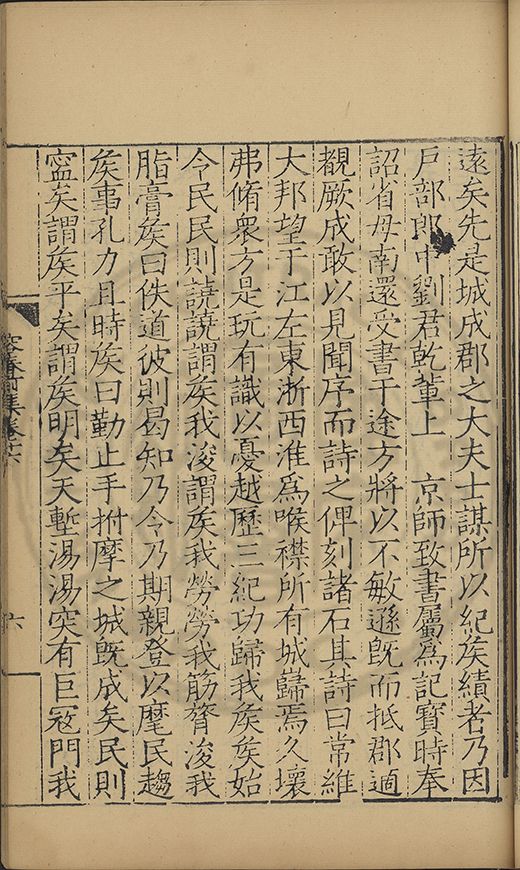 遠矣先是城成郡之大夫士謀所以紀矦績者乃因
戶部郎中劉君乾輩上 京師致書屬爲記寳時奉
詔省母南還受書于途方將以不敏遜旣而抵郡適
覩厥成敢以見聞序而詩之俾刻諸石其詩曰常維
大邦望于江左東浙西淮爲喉襟所有城歸焉久壞
弗脩衆方是玩有識以憂越歷三紀功歸我矦矦始
令民民則譊譊謂矦我浚謂矦我勞勞我筋膂浚我
脂膏矦曰佚道彼則曷知乃令乃期親登以麾民趨
矦事孔力且時矦曰勤止手拊摩之城旣成矣民則
寍矣謂矦平矣謂矦明矣天塹湯湯突有巨冦門我
容春前集卷十六
六